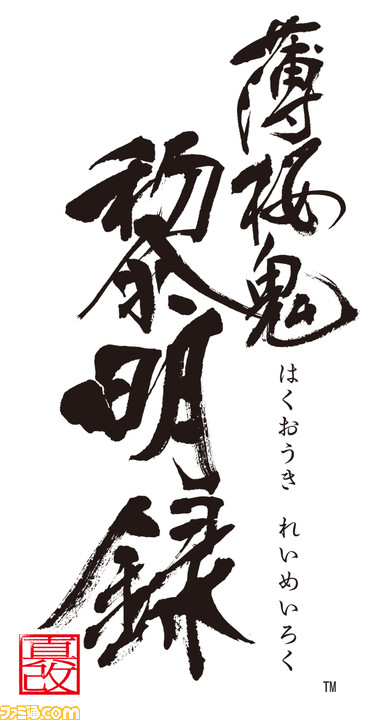 薄桜鬼
黎明録
はくおうき れいめいろく
真改
TM
ファミ通com